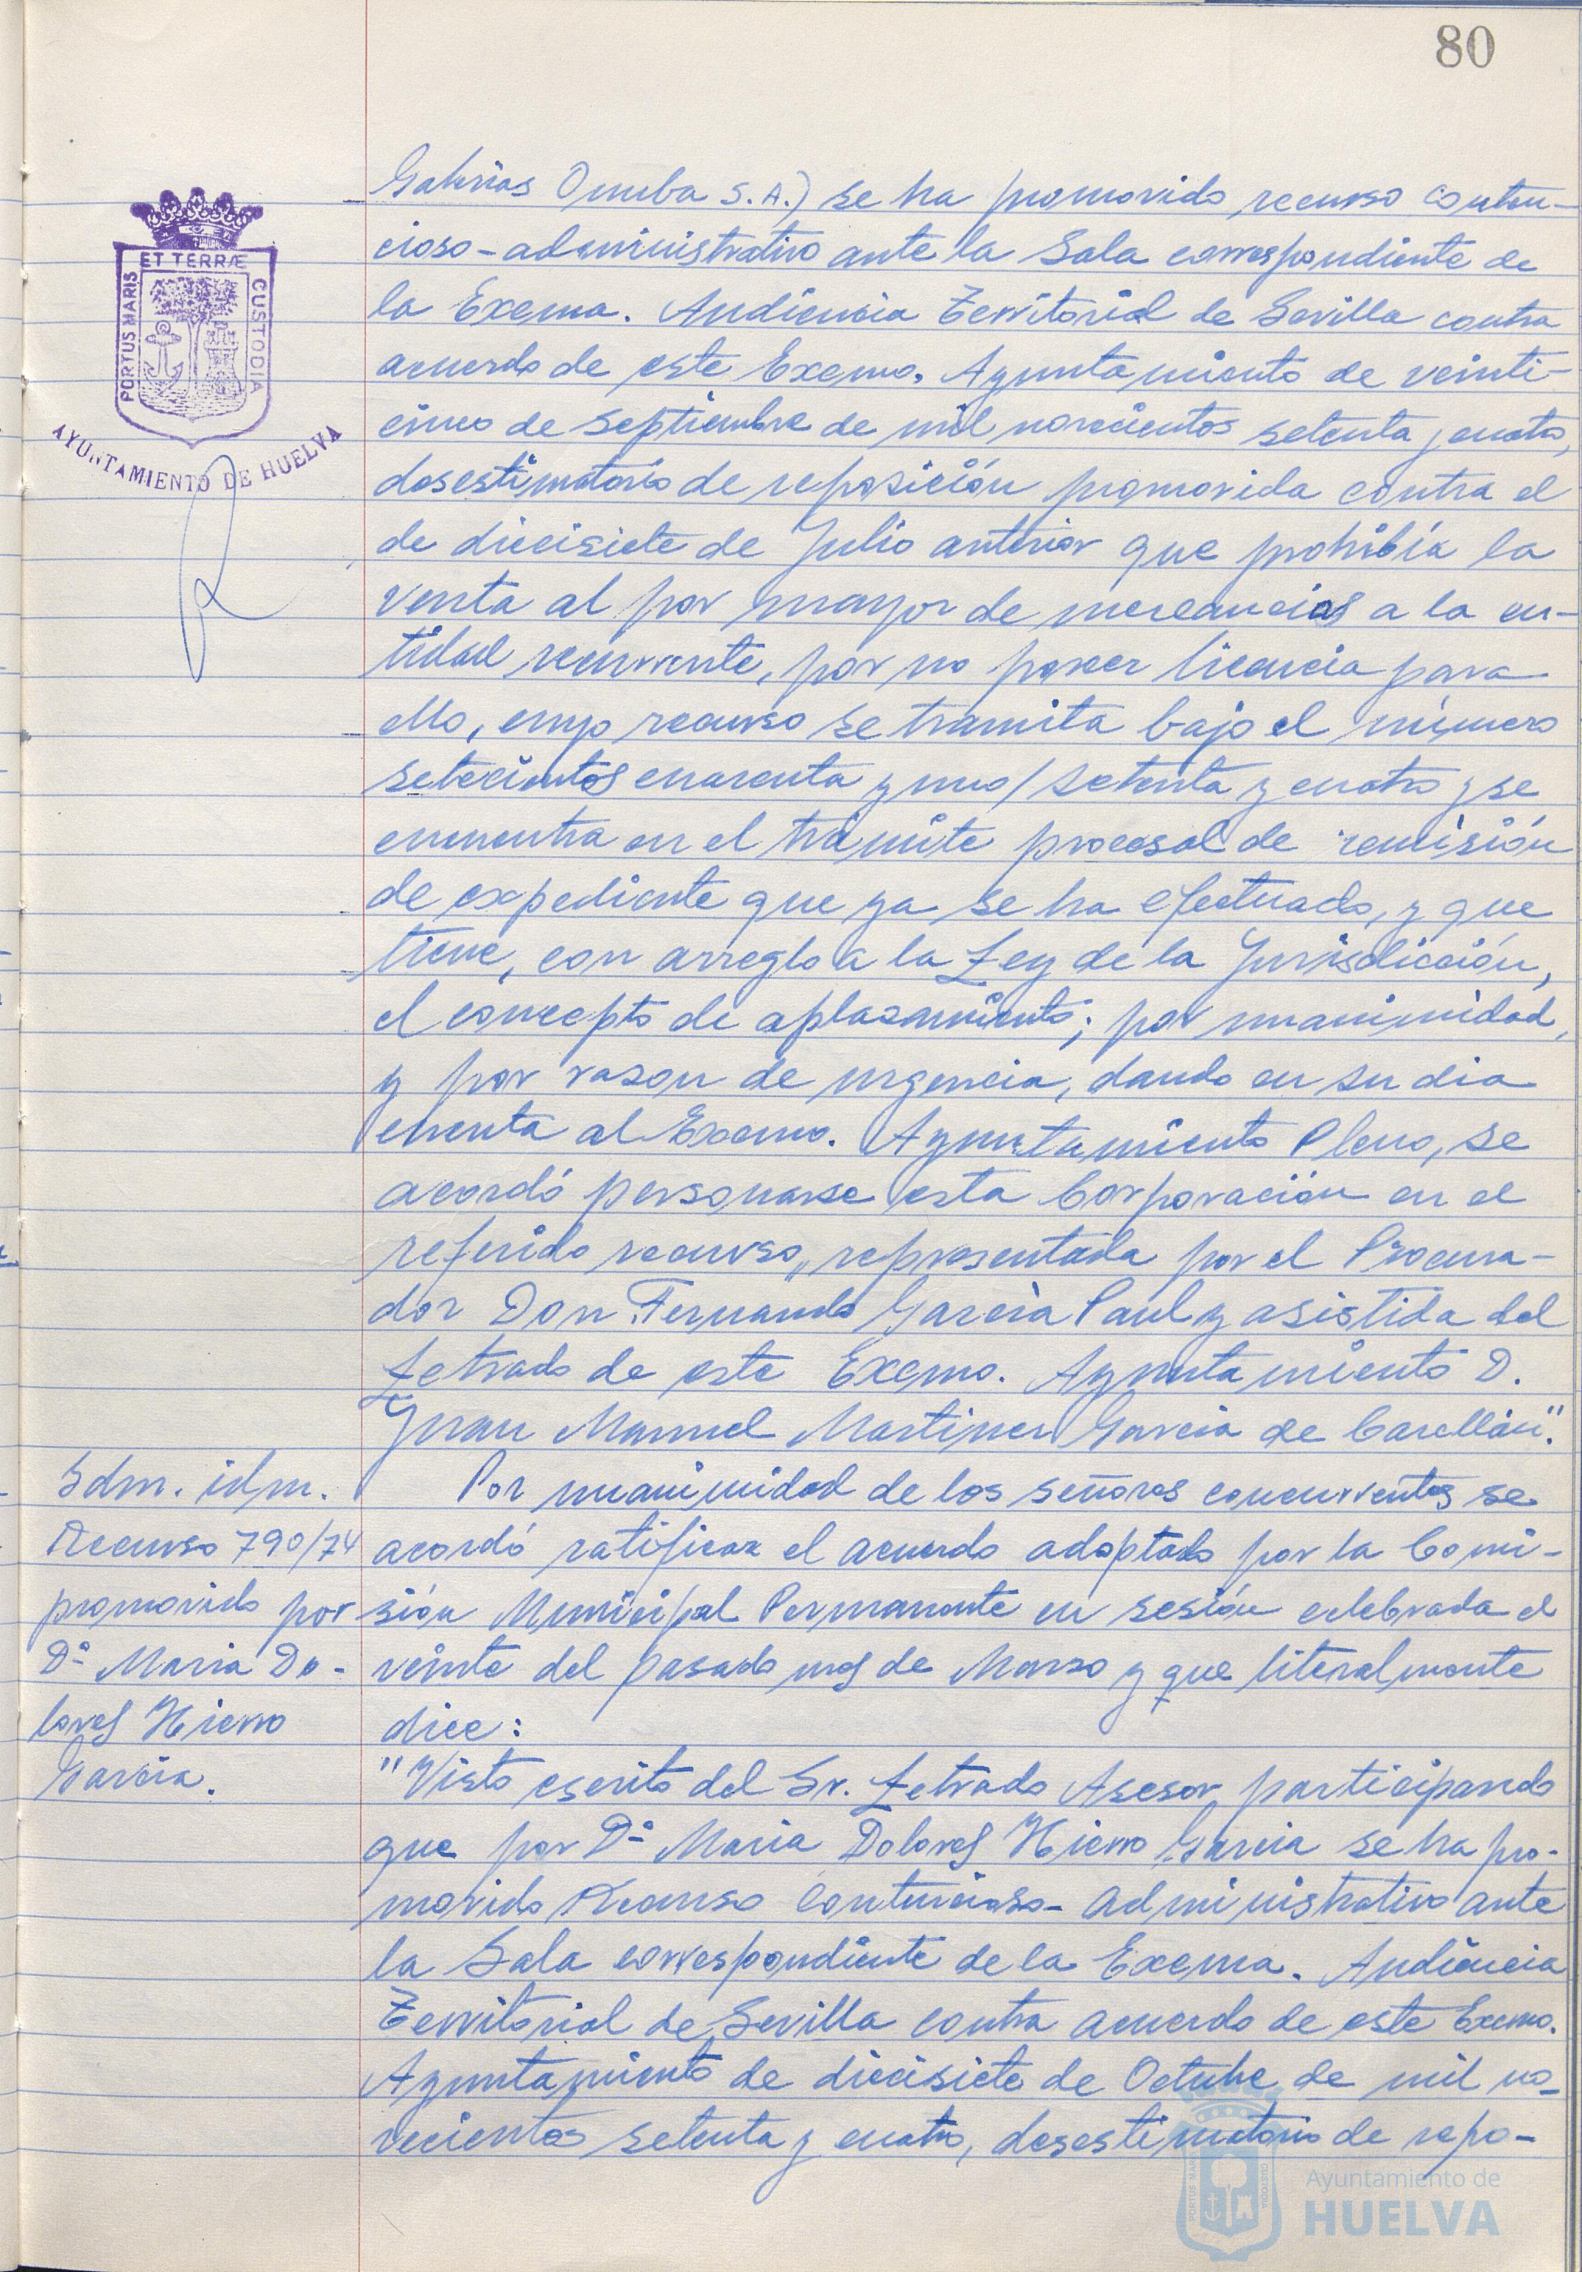 80
ET TERRÆ
PORTUS MARIS
CUSTODIA
AYUNTAMIENTO DE HUELVA
Galerias Onuba S.A.) se ha promovido recurso conten-
cioso-administrativo ante la Sala correspondiente de
la Excma. Audiencia Territorial de Sevilla contra
acuerdo de este Excmo. Ayuntamiento de veinti-
cinco de Septiembre de mil novecientos setenta y cuatro,
desestimatorio de reposición promovida contra el
de diecisiete de Julio anterior que prohibía la
venta al por mayor de mercancías a la en-
tidad recurrente, por no poseer licencia para
ello, cuyo recurso se tramita bajo el número
setecientos cuarenta y uno/setenta y cuatro y se
encuentra en el trámite procesal de remisión
de expediente que ya se ha efectuado, y que
tiene, con arreglo a la Ley de la Jurisdicción,
el concepto de aplazamiento; por unanimidad,
y por razon de urgencia, dando en su dia
cuenta al Excmo. Ayuntamiento Pleno, se
acordó personarse esta Corporación en el
referido recurso, representada por el Procura-
dor Don Fernando García Paul y asistida del
Letrado de este Excmo. Ayuntamiento D.
Juan Manuel Martinez Garcia de Casellán".
Idm. idm.
Recurso 790/74
promovido por
Dª Maria Do-
lores Hierro
García.
Por unanimidad de los señores concurrentes se
acordó ratificar el acuerdo adoptado por la Comi-
sión Municipal Permanente en sesión celebrada el
veinte del pasado mes de Marzo y que literalmente
dice:
"Visto escrito del Sr. Letrado Asesor participando
que por Dª Maria Dolores Hierro Garcia se ha pro-
movido Recurso Contencioso-Administrativo ante
la Sala correspondiente de la Excma. Audiencia
Territorial de Sevilla contra acuerdo de este Excmo.
Ayuntamiento de diecisiete de Octubre de mil no-
vecientos setenta y cuatro, desestimatorio de repo-
Ayuntamiento de
HUELVA